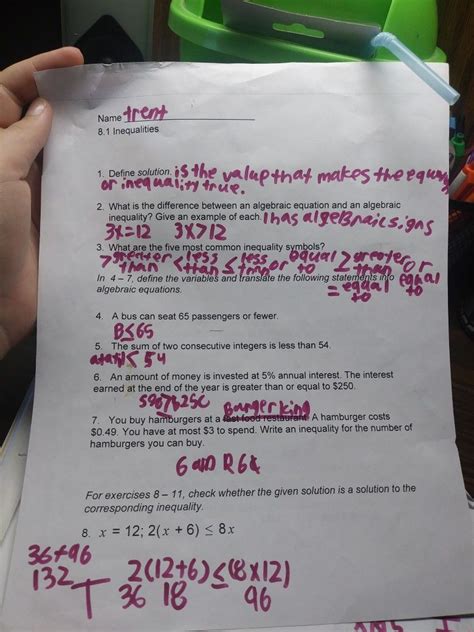 Name trent
8.1 Inequalities
1. Define solution. is the value that makes the equality
or inequality true.
2. What is the difference between an algebraic equation and an algebraic
inequality? Give an example of each. 1 has algeBraic signs
3x=12 3x>12
3. What are the five most common inequality symbols?
> greater than < less than ≤ less than or equal to ≥ greater than or equal to
= equal to
In 4 – 7, define the variables and translate the following statements into
algebraic equations.
4. A bus can seat 65 passengers or fewer.
B≤65
5. The sum of two consecutive integers is less than 54.
54
6. An amount of money is invested at 5% annual interest. The interest
earned at the end of the year is greater than or equal to $250.
Burger king
7. You buy hamburgers at a fast food restaurant. A hamburger costs
$0.49. You have at most $3 to spend. Write an inequality for the number of
hamburgers you can buy.
For exercises 8 – 11, check whether the given solution is a solution to the
corresponding inequality.
8. x = 12; 2(x + 6) ≤ 8x
36+96
132 T 2(12+6)≤(8x12)
36 18 96